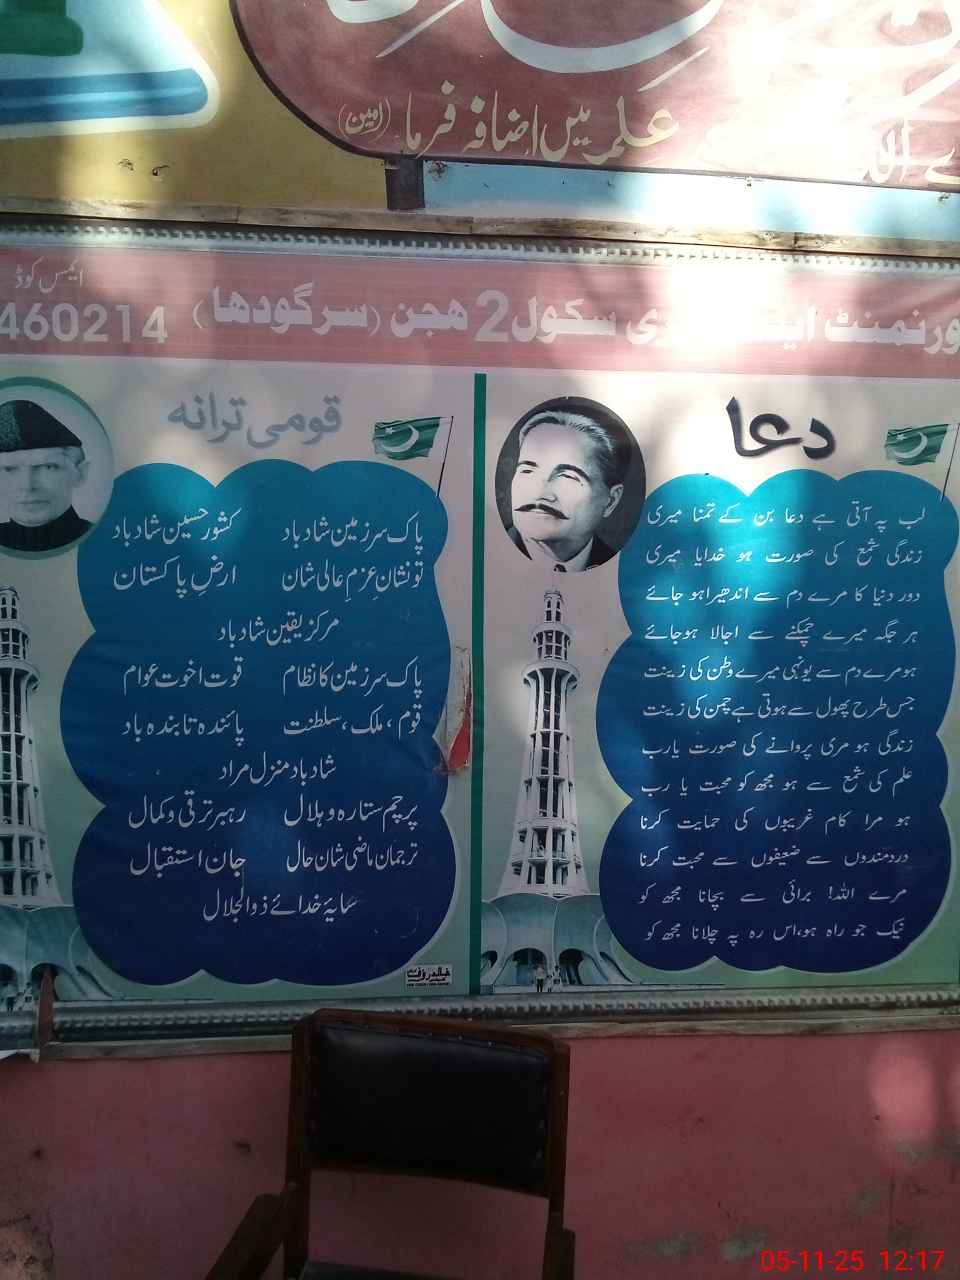 علم میں اضافہ فرما (امین)
ایمس کوڈ
460214
سکول 2 هجن (سرگودها)
دعا
لب پہ آتی ہے دعا بن کے تمنا میری
زندگی شمع کی صورت ہو خدایا میری
دور دنیا کا مرے دم سے اندھیرا ہو جائے
ہر جگہ میرے چمکنے سے اجالا ہوجائے
ہو مرے دم سے یونہی میرے وطن کی زینت
جس طرح پھول سے ہوتی ہے چمن کی زینت
زندگی ہو مری پروانے کی صورت یارب
علم کی شمع سے ہو مجھ کو محبت یا رب
ہو مرا کام غریبوں کی حمایت کرنا
دردمندوں سے ضعیفوں سے محبت کرنا
مرے اللہ! برائی سے بچانا مجھ کو
نیک جو راہ ہو، اس رہ پہ چلانا مجھ کو
قومی ترانہ
پاک سرزمین شاد باد کشور حسین شاد باد
تو نشانِ عزمِ عالی شان ارضِ پاکستان
مرکز یقین شاد باد
پاک سرزمین کا نظام قوت اخوت عوام
قوم، ملک، سلطنت پائندہ تابندہ باد
شاد باد منزل مراد
پرچم ستارہ و ہلال رہبر ترقی و کمال
ترجمان ماضی شان حال جان استقبال
سایۂ خدائے ذوالجلال
05-11-25 12:17